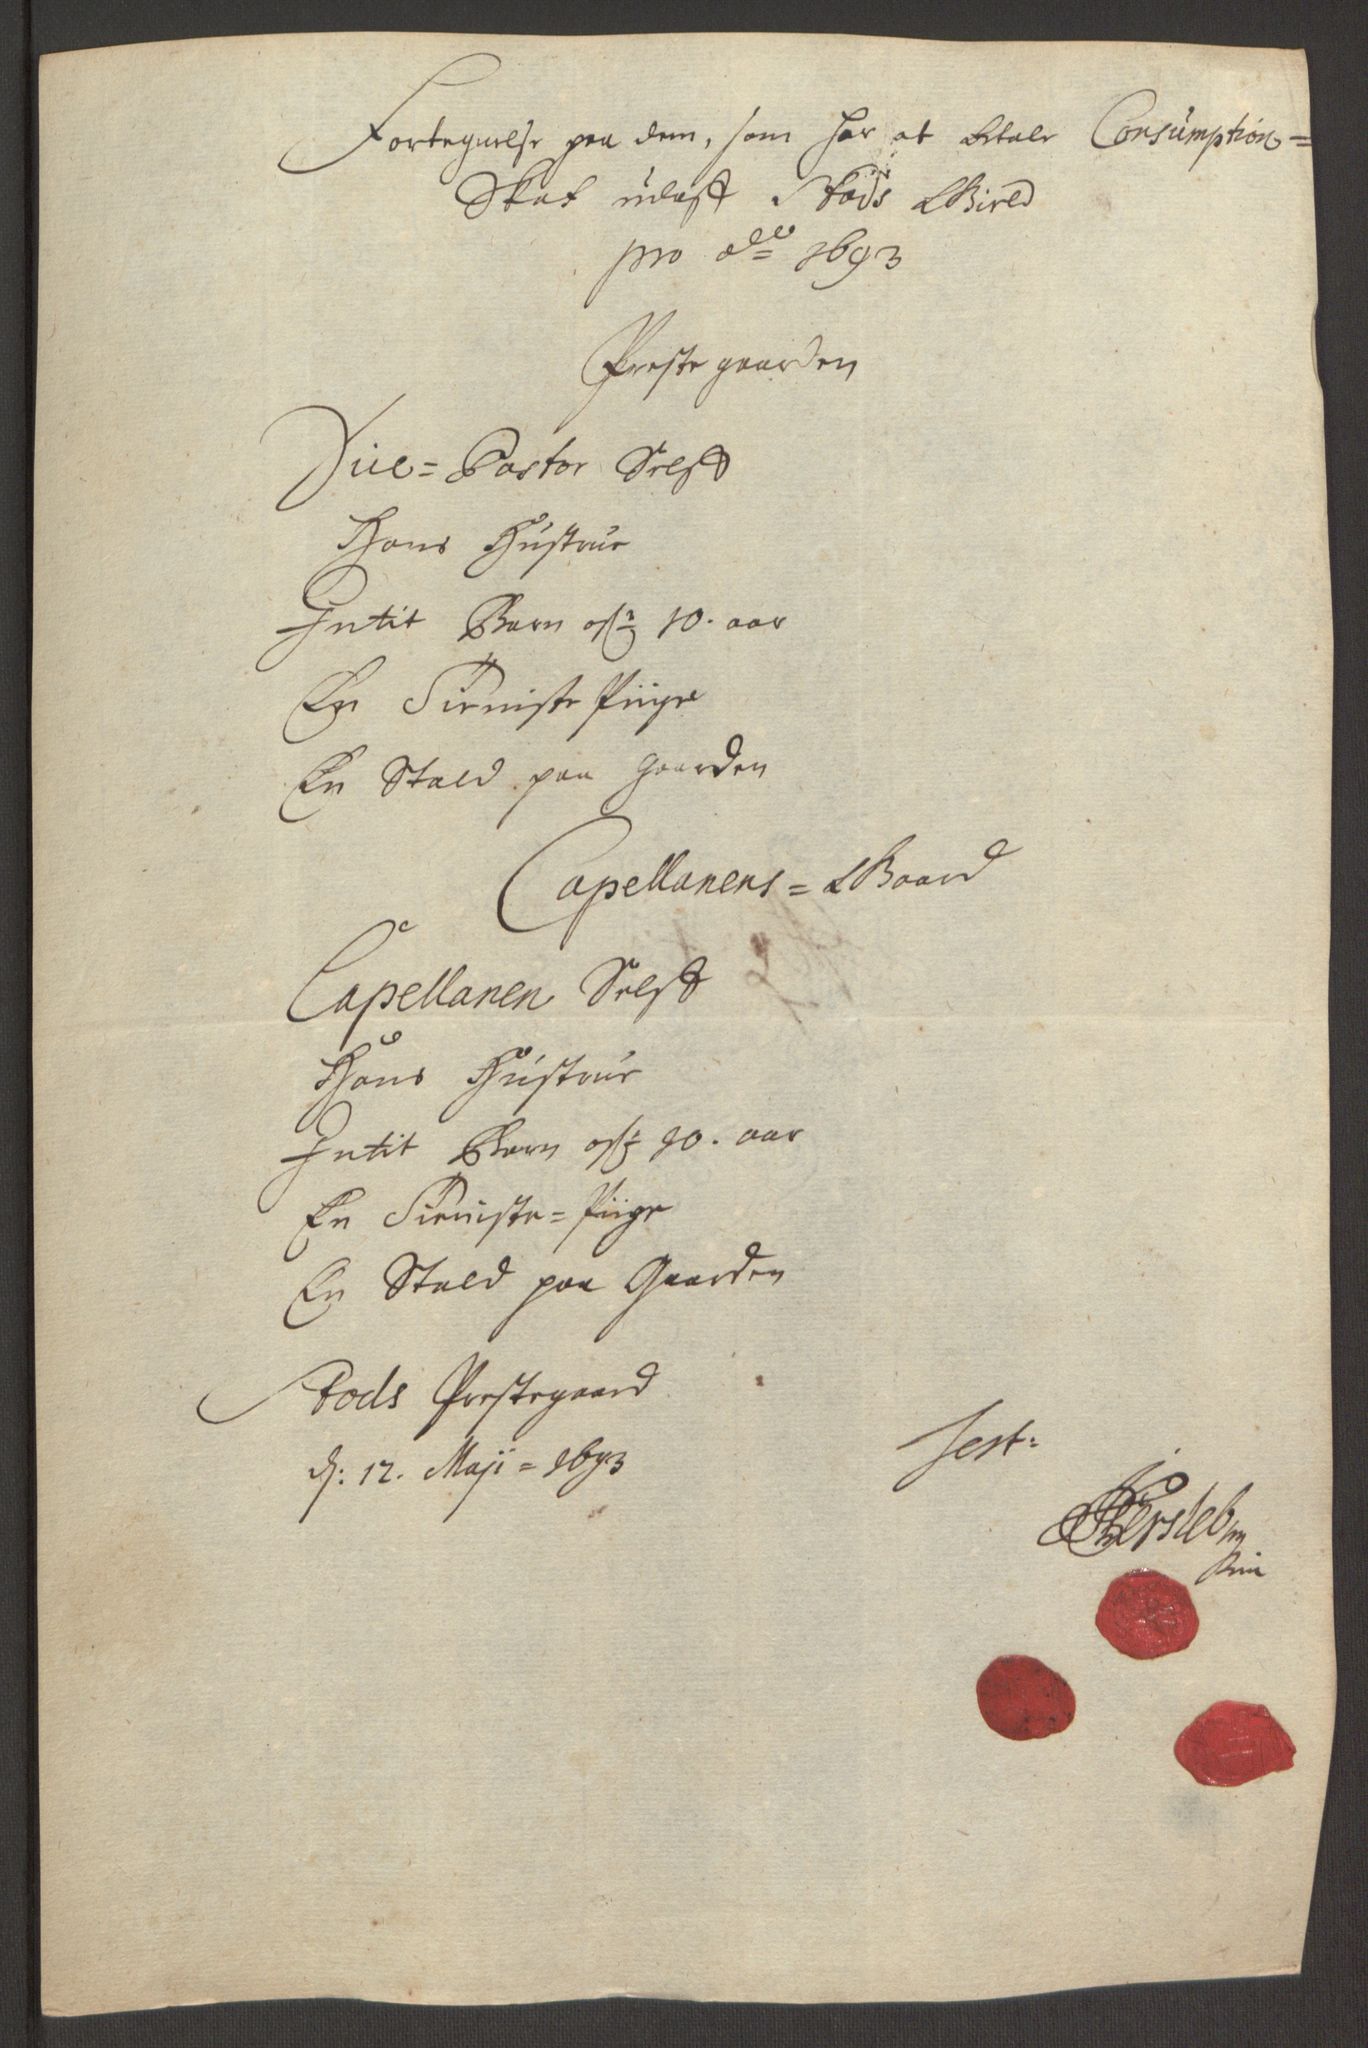 Fortegnelse paa dem, som har at betale Consumption=
Skat udaff Stods Gield
pro Ao 1693
Prestegaarden
Vice=Pastor Selff
Hans Hustrue
Intit Barn ofr 10. aar
En Tieniste Piige
En Stald paa gaarden
Capellanens=Gaard
Capellanen Selff
Hans Hustrue
Intit Barn ofr 10. aar
En Tieniste=Piige
En Stald paa Gaarden
Stods Prestegaard
d: 12. Maji=1693
Test:
Hersleb